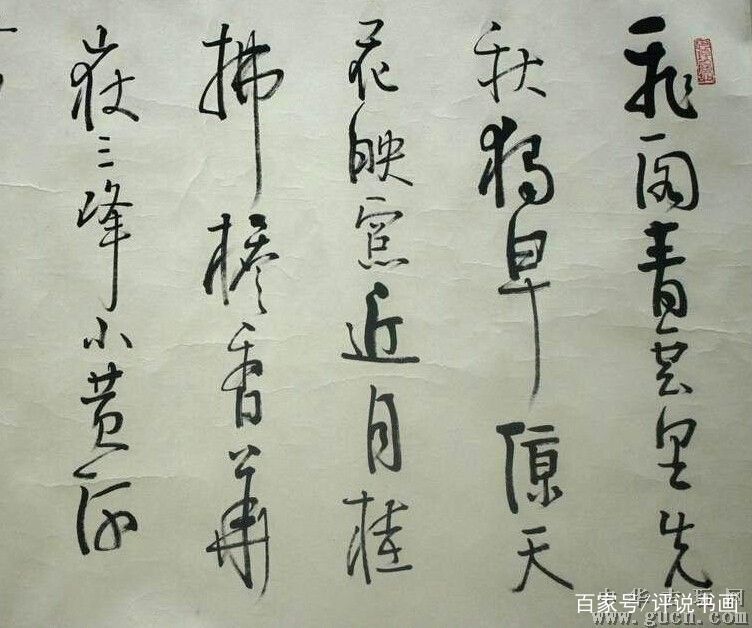 飛閣青雲里先
秋獨早涼天
花映窓近月桂
拂檐香華
嶽三峰小黄河
百家号/评说书画
www.gucn.com